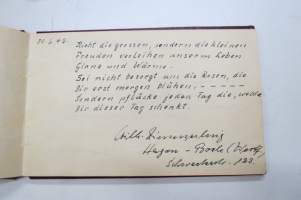 30.6.46. Nicht die grossen, sondern die kleinen
Freuden verleihen unserem Leben
Glanz und Wärme.
Sei nicht besorgt um die Rosen, die
Dir erst morgen blühen, - - - - -
Sondern pflücke jeden Tag die, welche
Dir dieser Tag schenkt.
Hagen - Boele